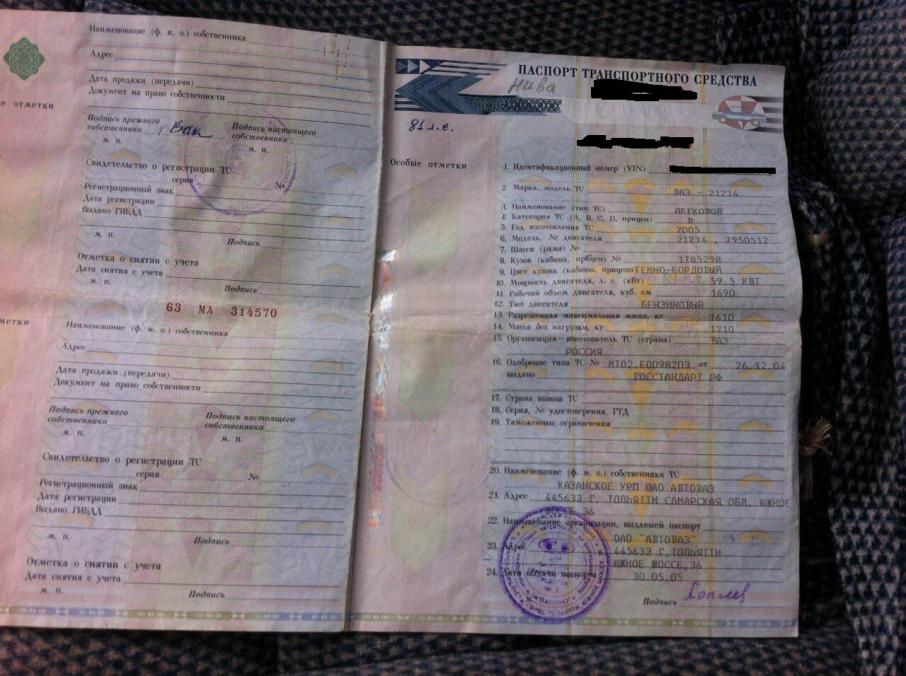 Наименование (ф. и. о.) собственника
Адрес
Дата продажи (передачи)
Документ на право собственности
е отметки
Подпись прежнего собственника
Подпись настоящего собственника
м. п.
м. п.
Свидетельство о регистрации ТС
серия №
Регистрационный знак
Дата регистрации
Выдано ГИБДД
м. п.
Подпись
Отметка о снятии с учета
Дата снятия с учета
м. п.
Подпись
63 МА 314570
тметки
Наименование (ф. и. о.) собственника
Адрес
Дата продажи (передачи)
Документ на право собственности
Подпись прежнего собственника
Подпись настоящего собственника
м. п.
м. п.
Свидетельство о регистрации ТС
серия №
Регистрационный знак
Дата регистрации
Выдано ГИБДД
м. п.
Подпись
Отметка о снятии с учета
Дата снятия с учета
м. п.
Подпись
ПАСПОРТ ТРАНСПОРТНОГО СРЕДСТВА
Нива
81 л.с.
Особые отметки
1. Идентификационный номер (VIN)
2. Марка, модель ТС ВАЗ - 21214
3. Наименование (тип ТС) ЛЕГКОВОЙ
4. Категория ТС (А, В, С, D, прицеп) В
5. Год изготовления ТС 2005
6. Модель, № двигателя 21214, 7950512
7. Шасси (рама) №
8. Кузов (кабина, прицеп) № 1785298
9. Цвет кузова (кабины, прицепа) ТЕМНО-БОРДОВЫЙ
10. Мощность двигателя, л. с. (кВт) 59.5 КВТ
11. Рабочий объем двигателя, куб. см 1690
12. Тип двигателя БЕНЗИНОВЫЙ
13. Разрешенная максимальная масса, кг 1610
14. Масса без нагрузки, кг 1210
15. Организация-изготовитель ТС (страна) ВАЗ
РОССИЯ
16. Одобрение типа ТС № МТ02.Е00982П3 от 26.12.04
выдано ГОССТАНДАРТ РФ
17. Страна вывоза ТС
18. Серия, № удостоверения, ГТД
19. Таможенные ограничения
20. Наименование (ф. и. о.) собственника ТС
КАЗАНСКОЕ УРП ОАО АВТОВАЗ
21. Адрес 445633 Г. ТОЛЬЯТТИ САМАРСКАЯ ОБЛ. ЮЖНОЕ
36
22. Наименование организации, выдавшей паспорт
ОАО "АВТОВАЗ"
23. Адрес 445633 Г.ТОЛЬЯТТИ
ЮЖНОЕ ШОССЕ,36
24. Дата выдачи паспорта 30.05.05
Подпись